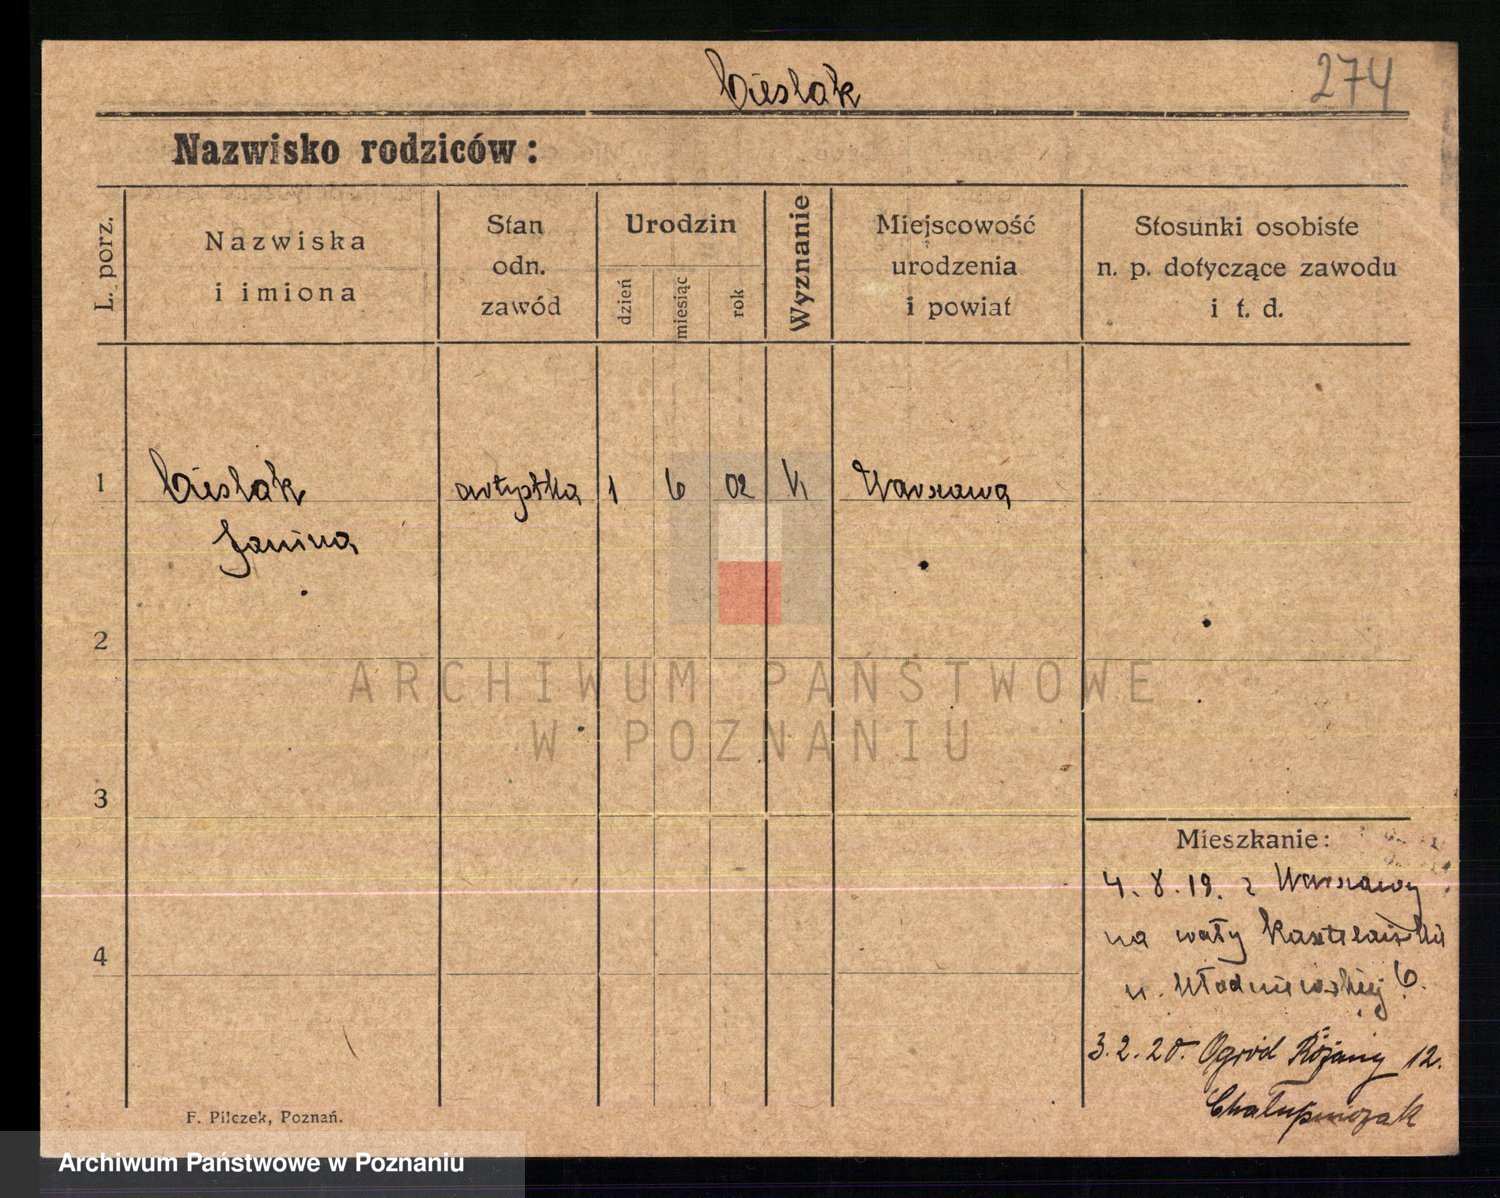 Cieslak
274
Nazwisko rodziców:
L. porz.
Nazwiska
i imiona
Stan
odn.
zawód
Urodzin
dzień
miesiąc
rok
Wyznanie
Miejscowość
urodzenia
i powiat
Stosunki osobiste
n. p. dotyczące zawodu
i t. d.
1
Cieslak
Janina
artystka
1
6
02
K
Warszawa
2
3
4
ARCHIWUM PAŃSTWOWE
W POZNANIU
Mieszkanie:
4. 8. 19. z Warszawy
na wały
u. 6.
3. 2. 20. Ogród Różany 12.
Chałupniczak
F. Pilczek, Poznań.
Archiwum Państwowe w Poznaniu